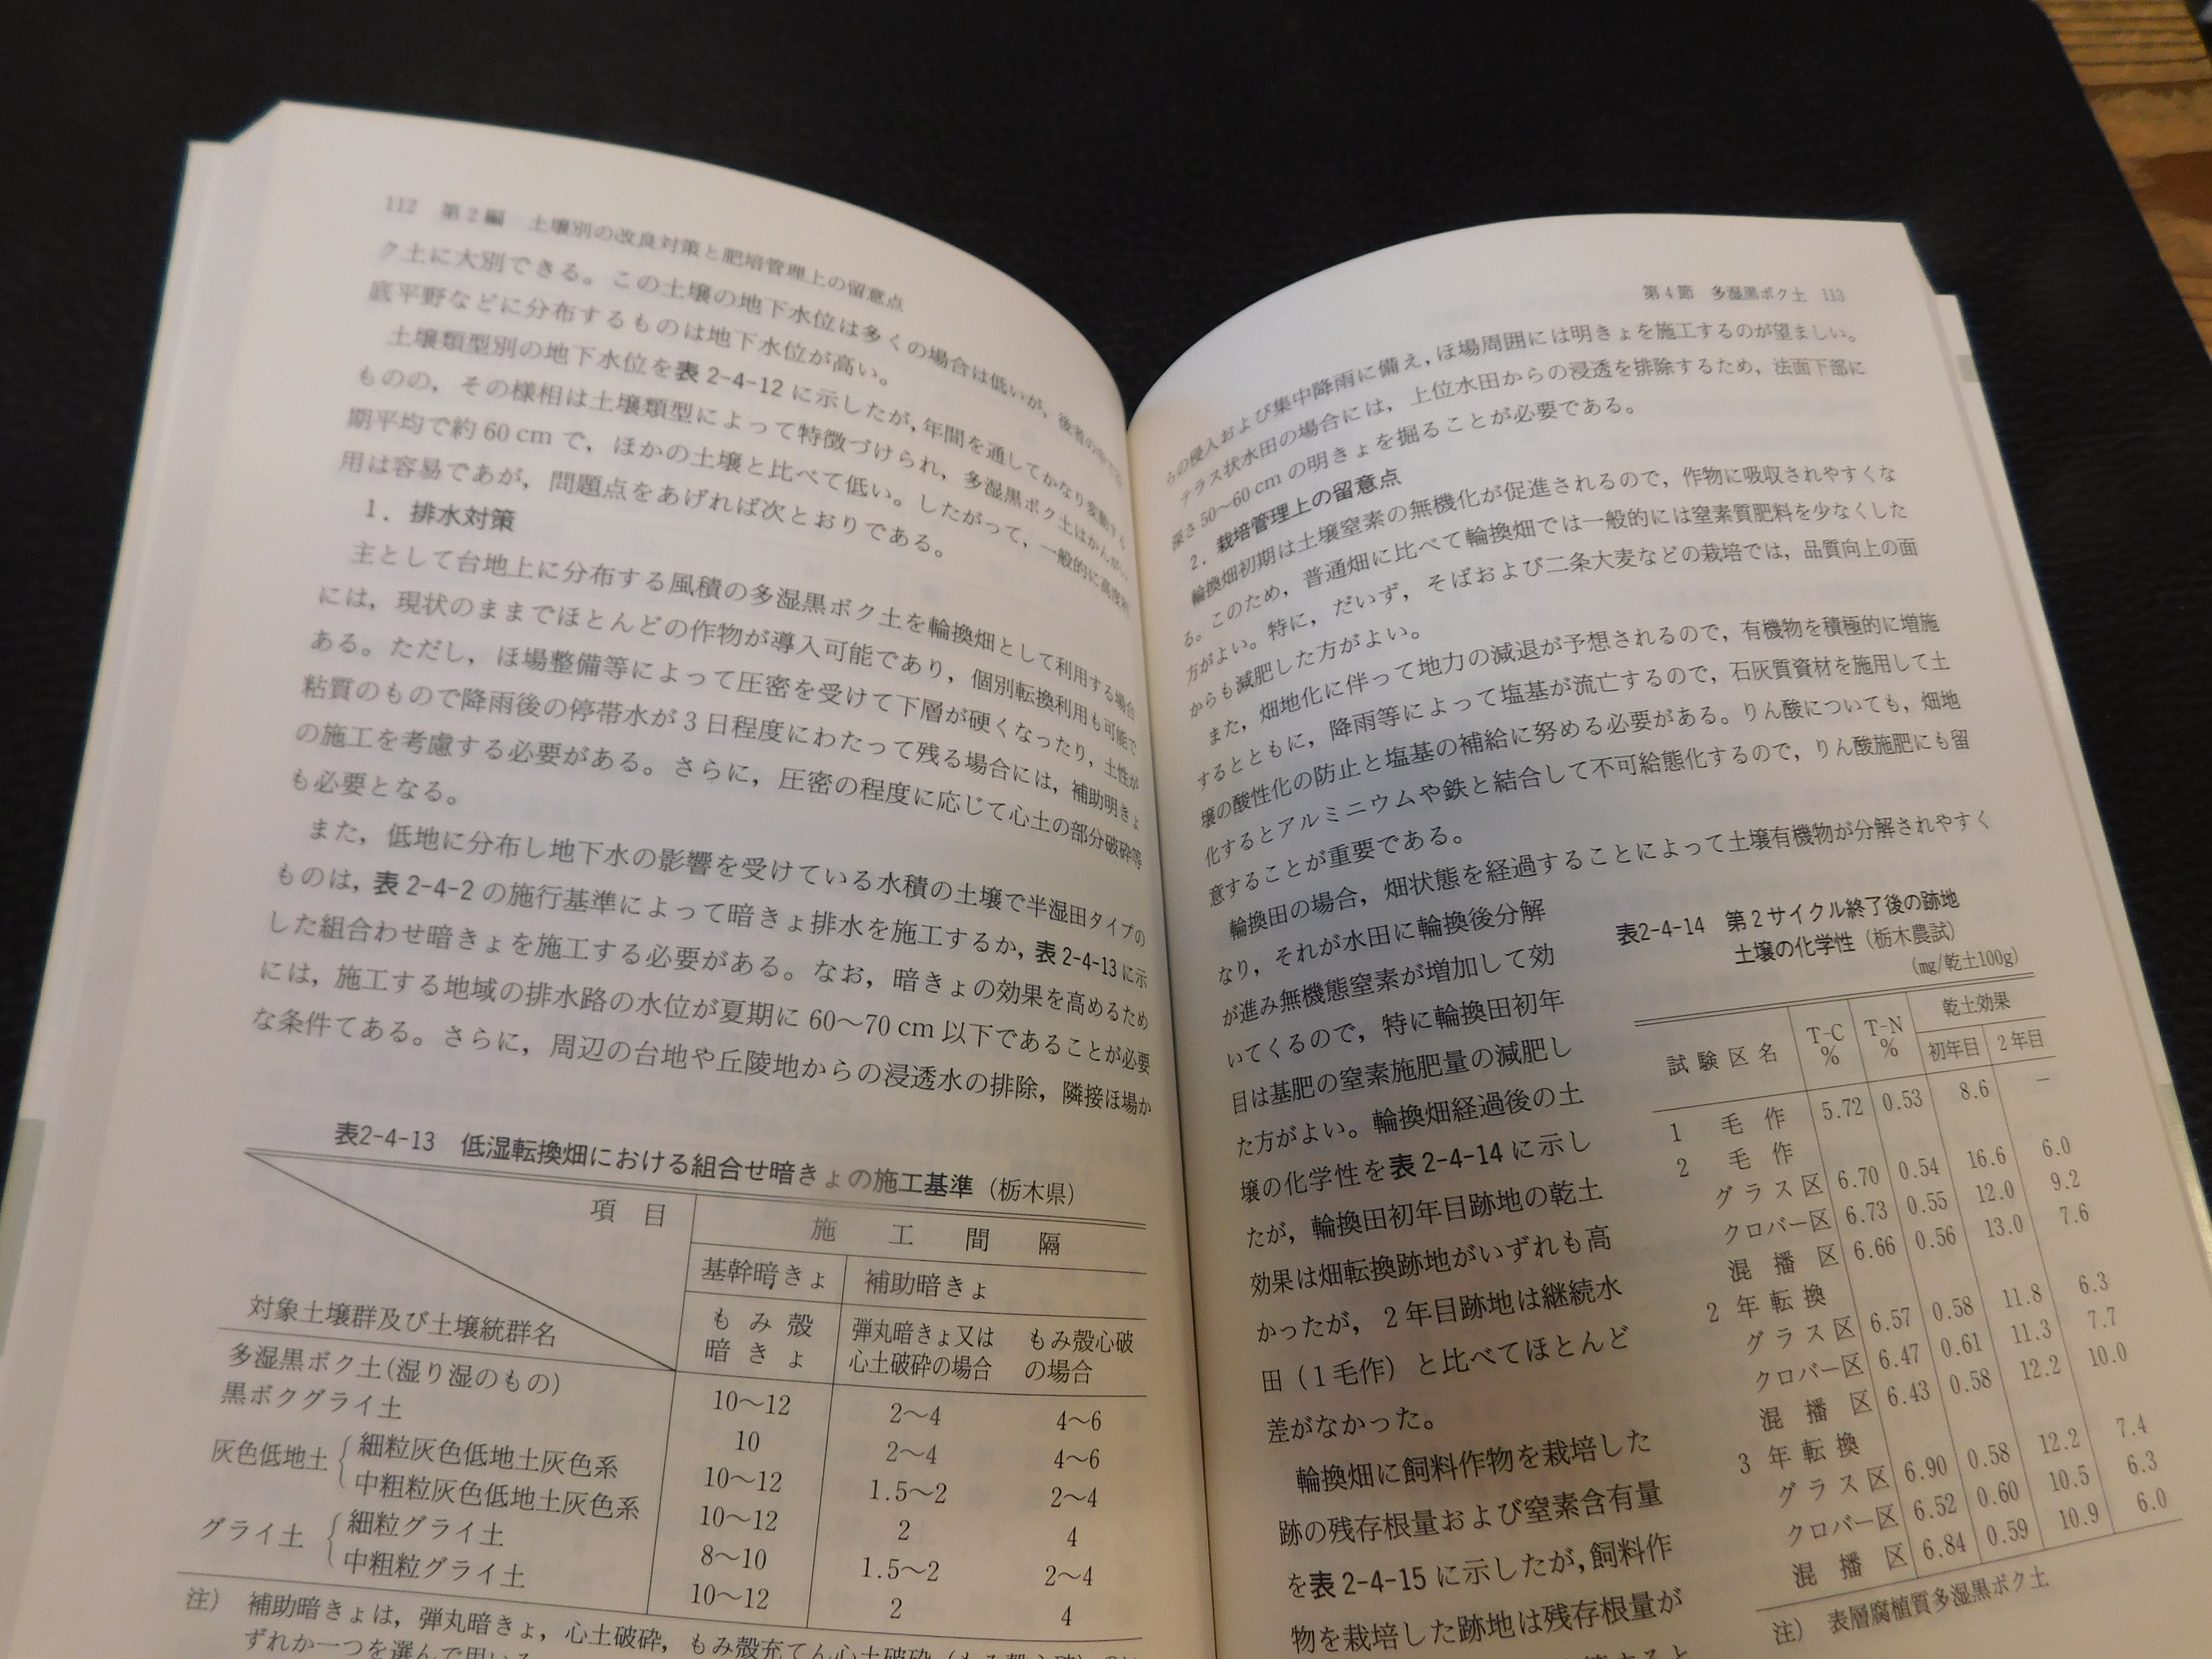 112 第2編 土壌別の改良対策と肥培管理上の留意点
ク土に大別できる。この土壌の地下水位は多くの場合は低いが，後者の中でも
底平野などに分布するものは地下水位が高い。
土壌類型別の地下水位を表2-4-12に示したが，年間を通してかなり変動する
ものの，その様相は土壌類型によって特徴づけられ，多湿黒ボク土はかんがい
期平均で約60cmで，ほかの土壌と比べて低い。したがって，一般的に高度利
用は容易であが，問題点をあげれば次とおりである。
1．排水対策
主として台地上に分布する風積の多湿黒ボク土を輪換畑として利用する場合
には，現状のままでほとんどの作物が導入可能であり，個別転換利用も可能で
ある。ただし，ほ場整備等によって圧密を受けて下層が硬くなったり，土性が
粘質のもので降雨後の停帯水が3日程度にわたって残る場合には，補助明きょ
の施工を考慮する必要がある。さらに，圧密の程度に応じて心土の部分破砕等
も必要となる。
また，低地に分布し地下水の影響を受けている水積の土壌で半湿田タイプの
ものは，表2-4-2の施行基準によって暗きょ排水を施工するか，表2-4-13に示
した組合わせ暗きょを施工する必要がある。なお，暗きょの効果を高めるため
には，施工する地域の排水路の水位が夏期に60〜70cm以下であることが必要
な条件てある。さらに，周辺の台地や丘陵地からの浸透水の排除，隣接ほ場か
表2-4-13 低湿転換畑における組合せ暗きょの施工基準（栃木県）
項目 施工間隔
基幹暗きょ 補助暗きょ
対象土壌群及び土壌統群名 もみ殻暗きょ 弾丸暗きょ又は心土破砕の場合 もみ殻心破の場合
多湿黒ボク土(湿り湿のもの) 10〜12 2〜4 4〜6
黒ボクグライ土 10 2〜4 4〜6
灰色低地土 細粒灰色低地土灰色系 10〜12 1.5〜2 2〜4
中粗粒灰色低地土灰色系 10〜12 2 4
グライ土 細粒グライ土 8〜10 1.5〜2 2〜4
中粗粒グライ土 10〜12 2 4
注） 補助暗きょは，弾丸暗きょ，心土破砕，もみ殻充てん心土破砕（もみ殻心破）の
ずれか一つを選んで用いる
第4節 多湿黒ボク土 113
らの侵入および集中降雨に備え，ほ場周囲には明きょを施工するのが望ましい。
テラス状水田の場合には，上位水田からの浸透を排除するため，法面下部に
深さ50〜60cmの明きょを掘ることが必要である。
2．栽培管理上の留意点
輪換畑初期は土壌窒素の無機化が促進されるので，作物に吸収されやすくな
る。このため，普通畑に比べて輪換畑では一般的には窒素質肥料を少なくした
方がよい。特に，だいず，そばおよび二条大麦などの栽培では，品質向上の面
からも減肥した方がよい。
また，畑地化に伴って地力の減退が予想されるので，有機物を積極的に増施
するとともに，降雨等によって塩基が流亡するので，石灰質資材を施用して土
壌の酸性化の防止と塩基の補給に努める必要がある。りん酸についても，畑地
化するとアルミニウムや鉄と結合して不可給態化するので，りん酸施肥にも留
意することが重要である。
輪換田の場合，畑状態を経過することによって土壌有機物が分解されやすく
なり，それが水田に輪換後分解
が進み無機態窒素が増加して効
いてくるので，特に輪換田初年
目は基肥の窒素施肥量の減肥し
た方がよい。輪換畑経過後の土
壌の化学性を表2-4-14に示し
たが，輪換田初年目跡地の乾土
効果は畑転換跡地がいずれも高
かったが，2年目跡地は継続水
田（1毛作）と比べてほとんど
差がなかった。
輪換畑に飼料作物を栽培した
跡の残存根量および窒素含有量
を表2-4-15に示したが，飼料作
物を栽培した跡地は残存根量が
表2-4-14 第2サイクル終了後の跡地
土壌の化学性（栃木農試）
(mg/乾土100g)
試験区名 T-C % T-N % 乾土効果
初年目 2年目
1 毛作 5.72 0.53 8.6 −
2 毛作
グラス区 6.70 0.54 16.6 6.0
クロバー区 6.73 0.55 12.0 9.2
混播区 6.66 0.56 13.0 7.6
2年転換
グラス区 6.57 0.58 11.8 6.3
クロバー区 6.47 0.61 11.3 7.7
混播区 6.43 0.58 12.2 10.0
3年転換
グラス区 6.90 0.58 12.2 7.4
クロバー区 6.52 0.60 10.5 6.3
混播区 6.84 0.59 10.9 6.0
注） 表層腐植質多湿黒ボク土